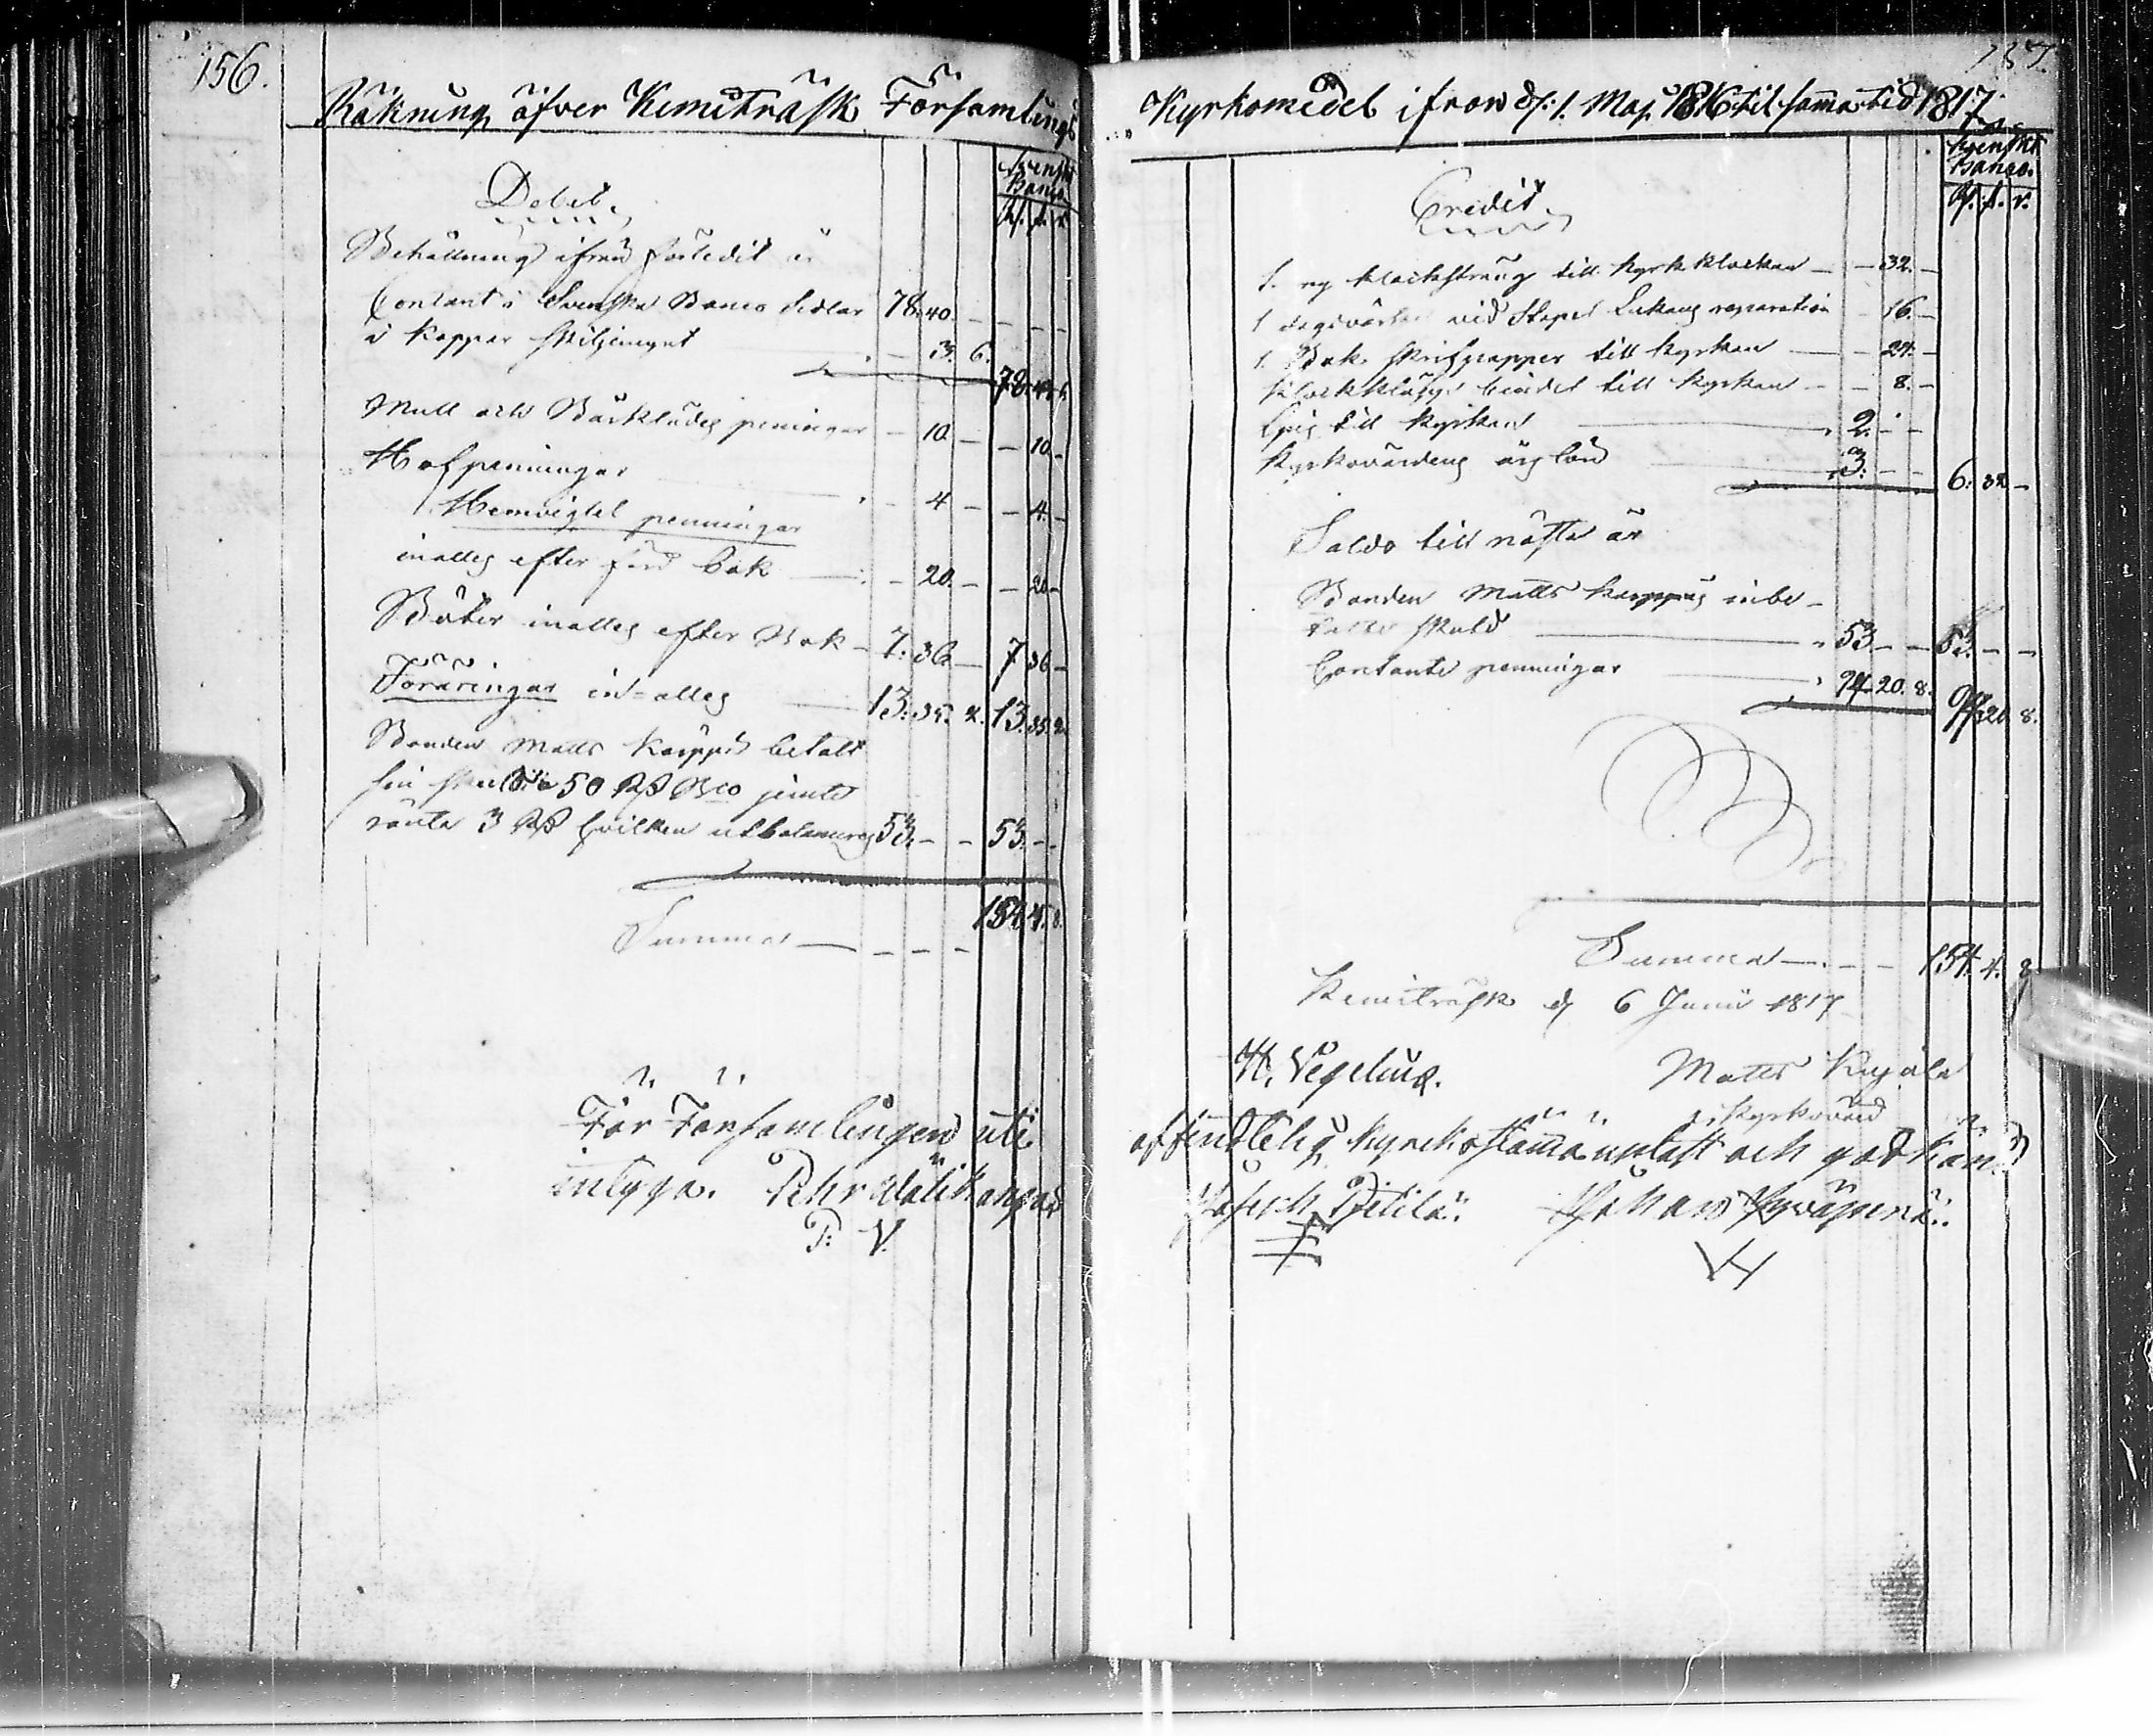 156.
Räkning öfver Kemiträsk Församlings
Svenskt
Banco
Rd. s. r.
Debet.
Behållning ifrån förledit år
Contant i Svenska Banco Sedlar 78. 40. - - - -
i koppar skiljemynt - 3. 6.
78. 43. 6.
Mull och Bårklädes peningar - 10. - - 10. -
Hafpenningar - 4 - - 4. -
Hemvigsel penningar
inalles efter förd bok - 20. - - 20. -
Böter inalles efter Bok - 7. 36. - 7 36 -
Föräringar in-alles 13. 35. 2. 13. 35. 2.
Bonden Matts Karppis betalt
sin skuld 50 Rd Bco jemte
ränta 3 Rd hvilken utbalanceras 53. - - 53. - -
Summa - - - 154. 4. 8.
För Församlingen
intyga. Pehr Wälikangas
P. V.
157.
Kyrkomedel ifrån d. 1. Maj. 1816 til samma tid 1817.
Svenskt
Banco.
Rd. s. r.
Credit.
1. ny klockstrang till kyrk klockan - - 32. -
1 dagsvärke vid Stapel reparation - 16. -
1. Bok skrifpapper till kyrkan - - 24. -
till kyrkan - - 8. -
till kyrkan 2. - -
Kyrkovärdens års lön 3. - -
6. 32 -
Saldo till nästa år
Bonden Matts Karppis inbe-
talte skuld 53 - - 53. - -
Contante penningar 94. 20. 8. 94. 20. 8.
Summa - - - 154. 4. 8
Kemiträsk d 6 Junii 1817
H. Vegelius. Matts Kujala
Kyrkovärd
offentelig kyrckostämma upläst och godkän
Josech Pitilä. Johan